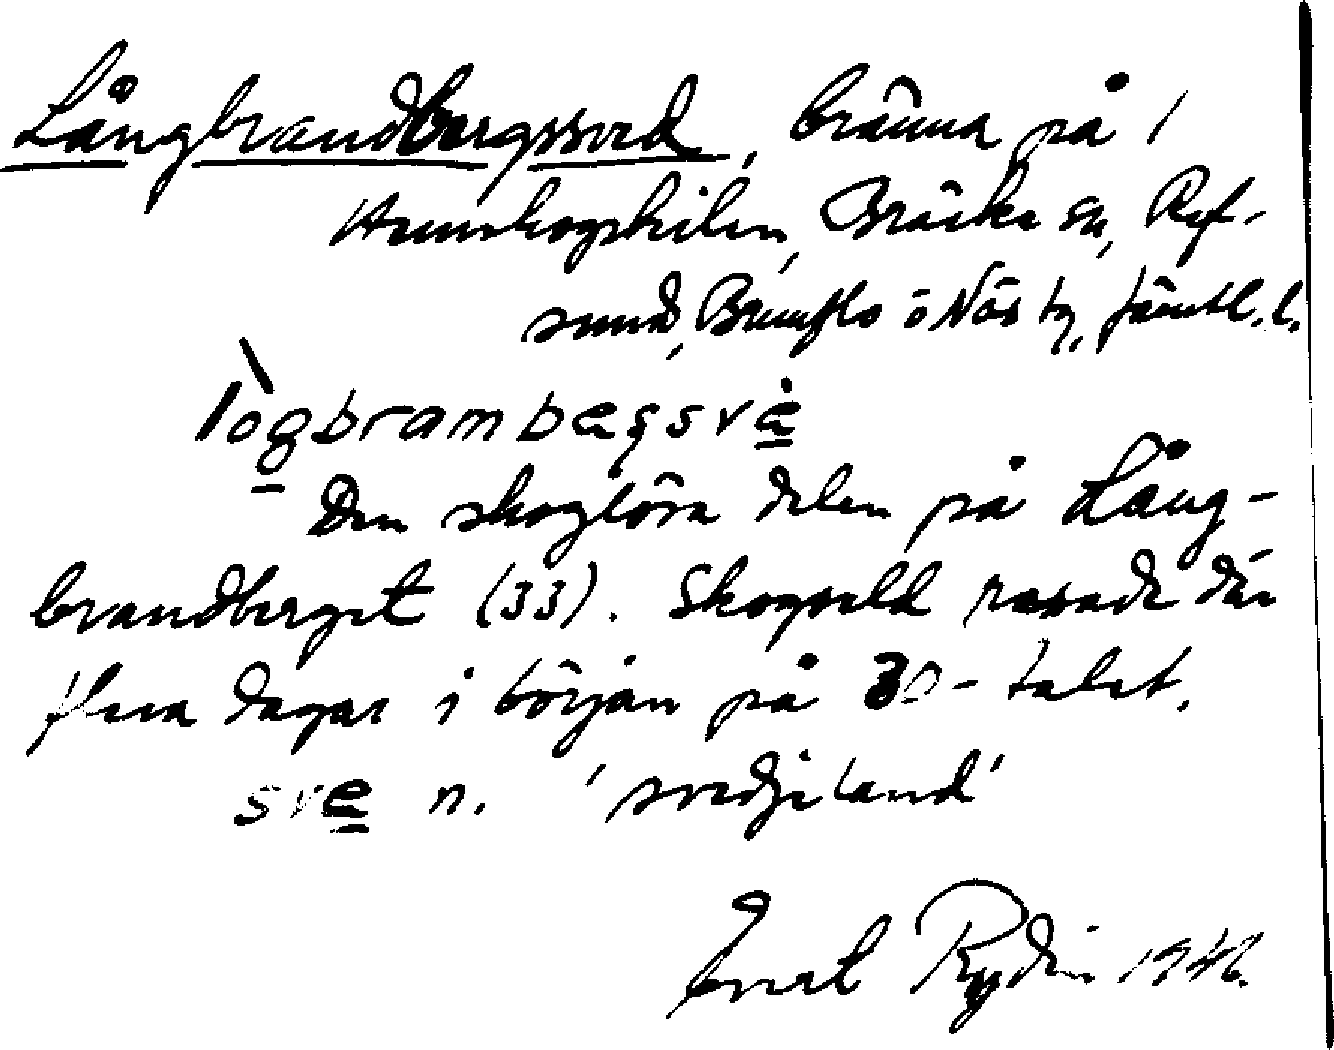 Långbrandbergssved, bränna på /
Hunskogskilen, Bräcke sn, Ref-
sund, Brunflo o Näs tg, Jämtl. l.
lògbrambegsvè
Den skoglösa delen på Lång-
brandberget (33). Skogseld rasade där
flera dagar i början på 30-talet.
sve n. 'svedjeland'
Rydin 1946.